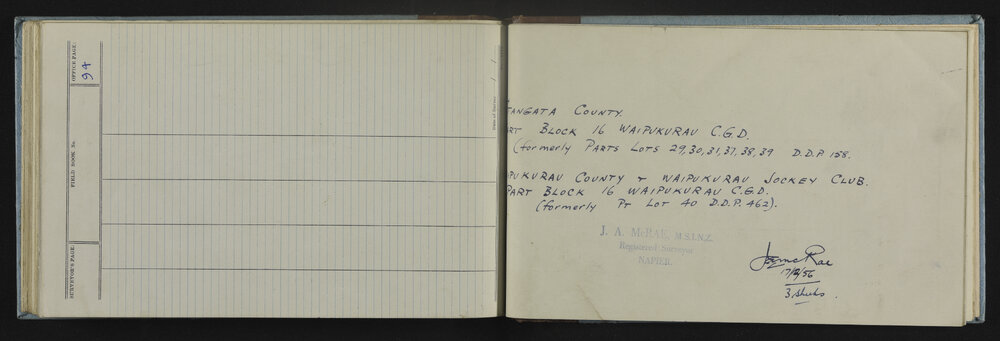 OFFICE PAGE.
98
FIELD BOOK No.
SURVEYOR'S PAGE.
Date of Survey / /
TANGATA COUNTY.
RT BLOCK 16 WAIPUKURAU C.G.D.
(formerly PARTS LOTS 29,30,31,37,38,39 D.D.P. 158.
PUKURAU COUNTY & WAIPUKURAU JOCKEY CLUB.
PART BLOCK 16 WAIPUKURAU C.G.D.
(formerly Pt LOT 40 D.D.P. 462).
J. A. McRAE, M.S.I.N.Z.
Registered Surveyor
NAPIER.
McRae
3 sheets.